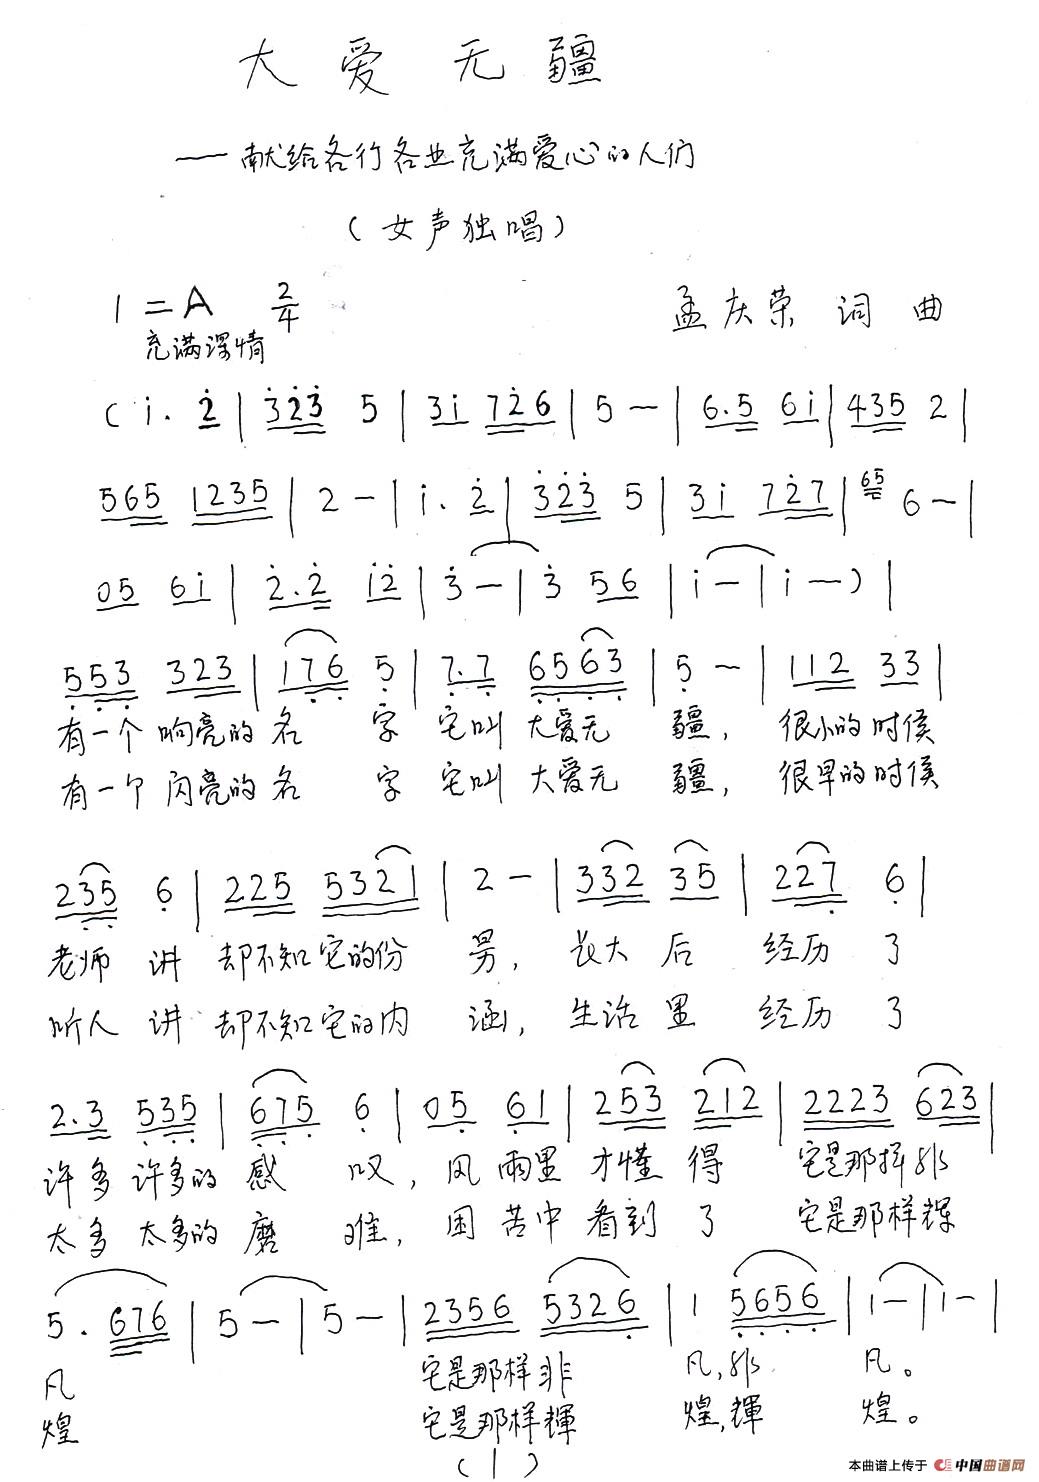 大爱无疆
——献给各行各业充满爱心的人们
（女声独唱）
1=A 2/4 孟庆荣 词 曲
充满深情
( i. 2 | 323 5 | 3i 726 | 5 — | 6.5 6i | 435 2 |
565 1235 | 2 — | i. 2 | 323 5 | 3i 727 | 65 6 — |
05 6i | 2.2 i2 | 3 — | 3 56 | i — | i — ) |
553 323 | 176 5 | 7.7 6563 | 5 — | 112 33 |
有一个 响亮的 名 字 它叫 大爱无 疆， 很小的 时候
有一个 闪亮的 名 字 它叫 大爱无 疆， 很早的 时候
235 6 | 225 5321 | 2 — | 332 35 | 227 6 |
老师 讲 却不知 它的份 男， 长大 后 经历 了
听人 讲 却不知 它的内 涵， 生活 里 经历 了
2.3 535 | 675 6 | 05 61 | 253 212 | 2223 623 |
许多 许多的 感 叹， 风 雨里 才懂 得 它是那样非
太多 太多的 磨 难， 困 苦中 看到 了 它是那样辉
5. 676 | 5 — | 5 — | 2356 5326 | 1 5656 | 1 — | 1 — |
凡 它是那样 非 凡，非 凡。
煌 它是那样 輝 煌，輝 煌。
(1)
本曲谱上传于 中国曲谱网